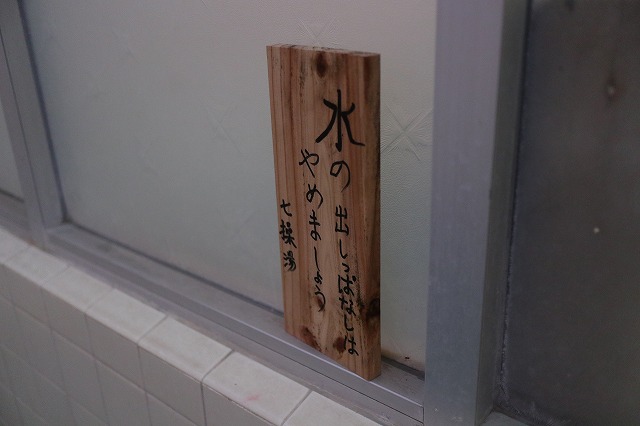 水の出しっぱなしは
やめましょう
七操湯